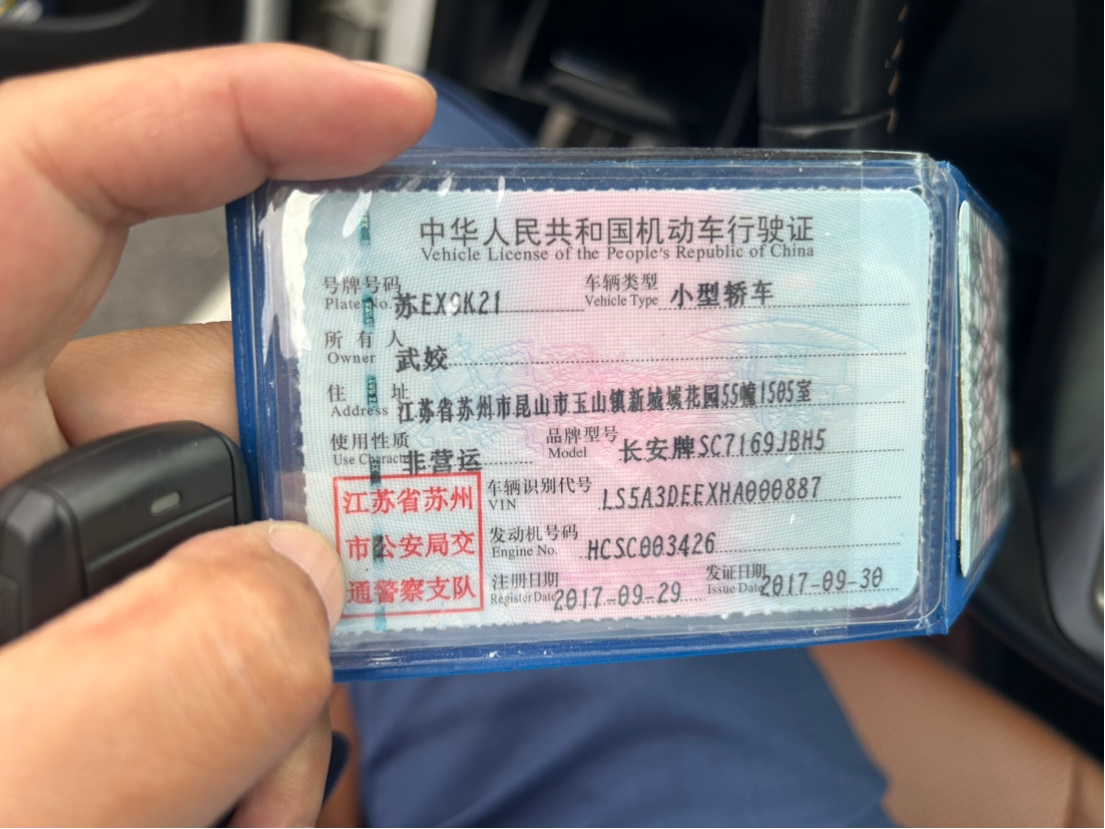 中华人民共和国机动车行驶证
Vehicle License of the People's Republic of China
号牌号码 Plate No. 苏EX9K21 车辆类型 Vehicle Type 小型轿车
所有人 Owner 武姣
住址 Address 江苏省苏州市昆山市玉山镇新城域花园55幢1505室
使用性质 Use Character 非营运 品牌型号 Model 长安牌SC7169JBH5
车辆识别代号 VIN LS5A3DEEXHA000887
发动机号码 Engine No. HCSC003426
注册日期 Register Date 2017-09-29 发证日期 Issue Date 2017-09-30
江苏省苏州
市公安局交
通警察支队